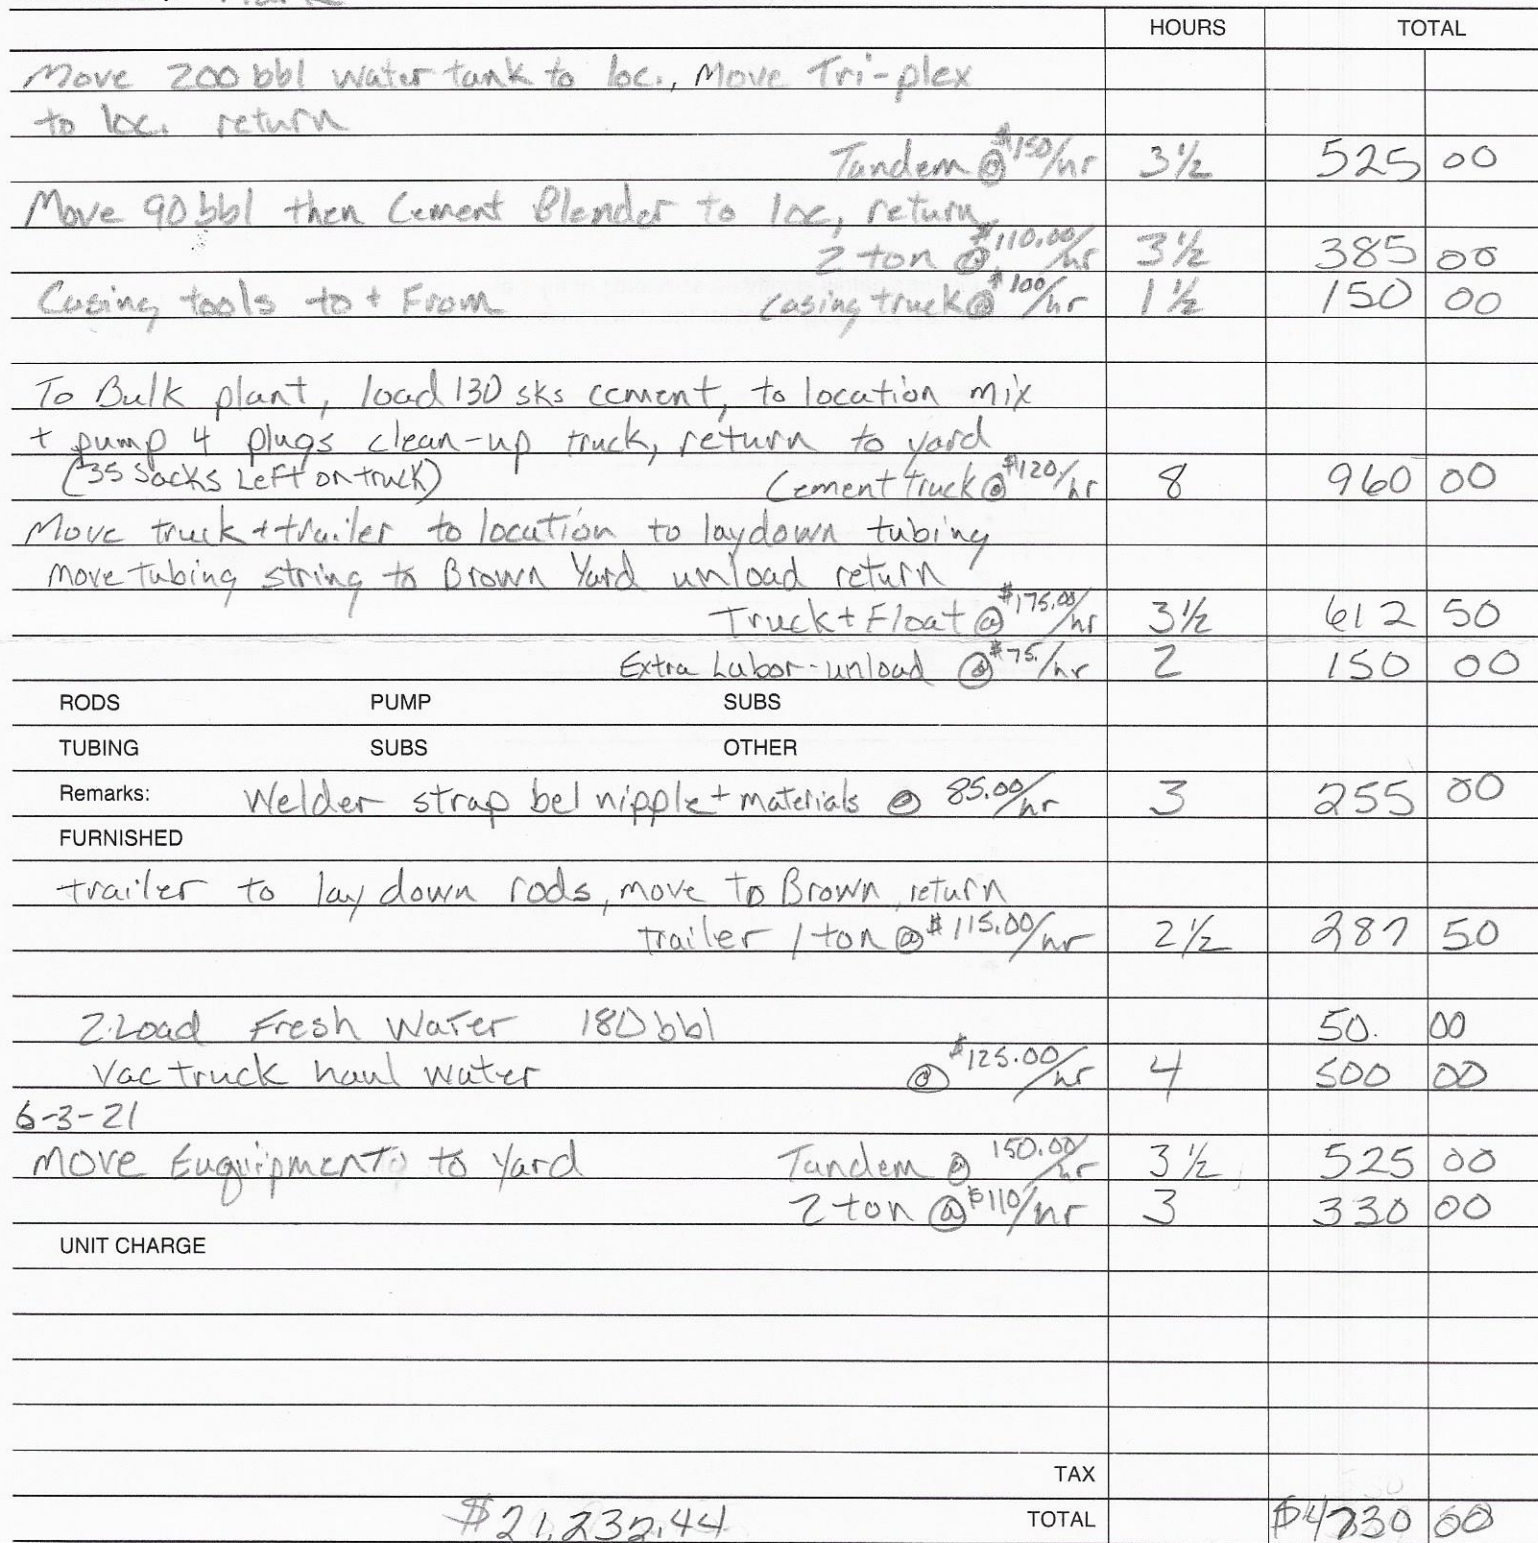 HOURS TOTAL
Move 200 bbl Water tank to loc., Move Tri-plex
to loc. return
Tandem @ $150/hr 3½ 525 00
Move 90 bbl then Cement Blender to loc, return
2 ton @ $110.00/hr 3½ 385 00
Casing tools to + From casing truck @ $100/hr 1½ 150 00
To Bulk plant, load 130 sks cement, to location mix
+ pump 4 plugs clean-up truck, return to yard
(35 Sacks Left on truck) Cement truck @ $120/hr 8 960 00
Move truck + trailer to location to laydown tubing
move tubing string to Brown Yard unload return
Truck + Float @ $175.00/hr 3½ 612 50
Extra Labor-unload @ $75./hr 2 150 00
RODS PUMP SUBS
TUBING SUBS OTHER
Remarks: Welder strap bel nipple + materials @ 85.00/hr 3 255 00
FURNISHED
trailer to lay down rods, move to Brown, return
trailer 1 ton @ $115.00/hr 2½ 287 50
2 Load Fresh Water 180 bbl 50. 00
Vac truck haul water @ $125.00/hr 4 500 00
6-3-21
Move Euquipment to Yard Tandem @ 150.00/hr 3½ 525 00
2 ton @ $110/hr 3 330 00
UNIT CHARGE
TAX
$21,232.44 TOTAL $4730 00